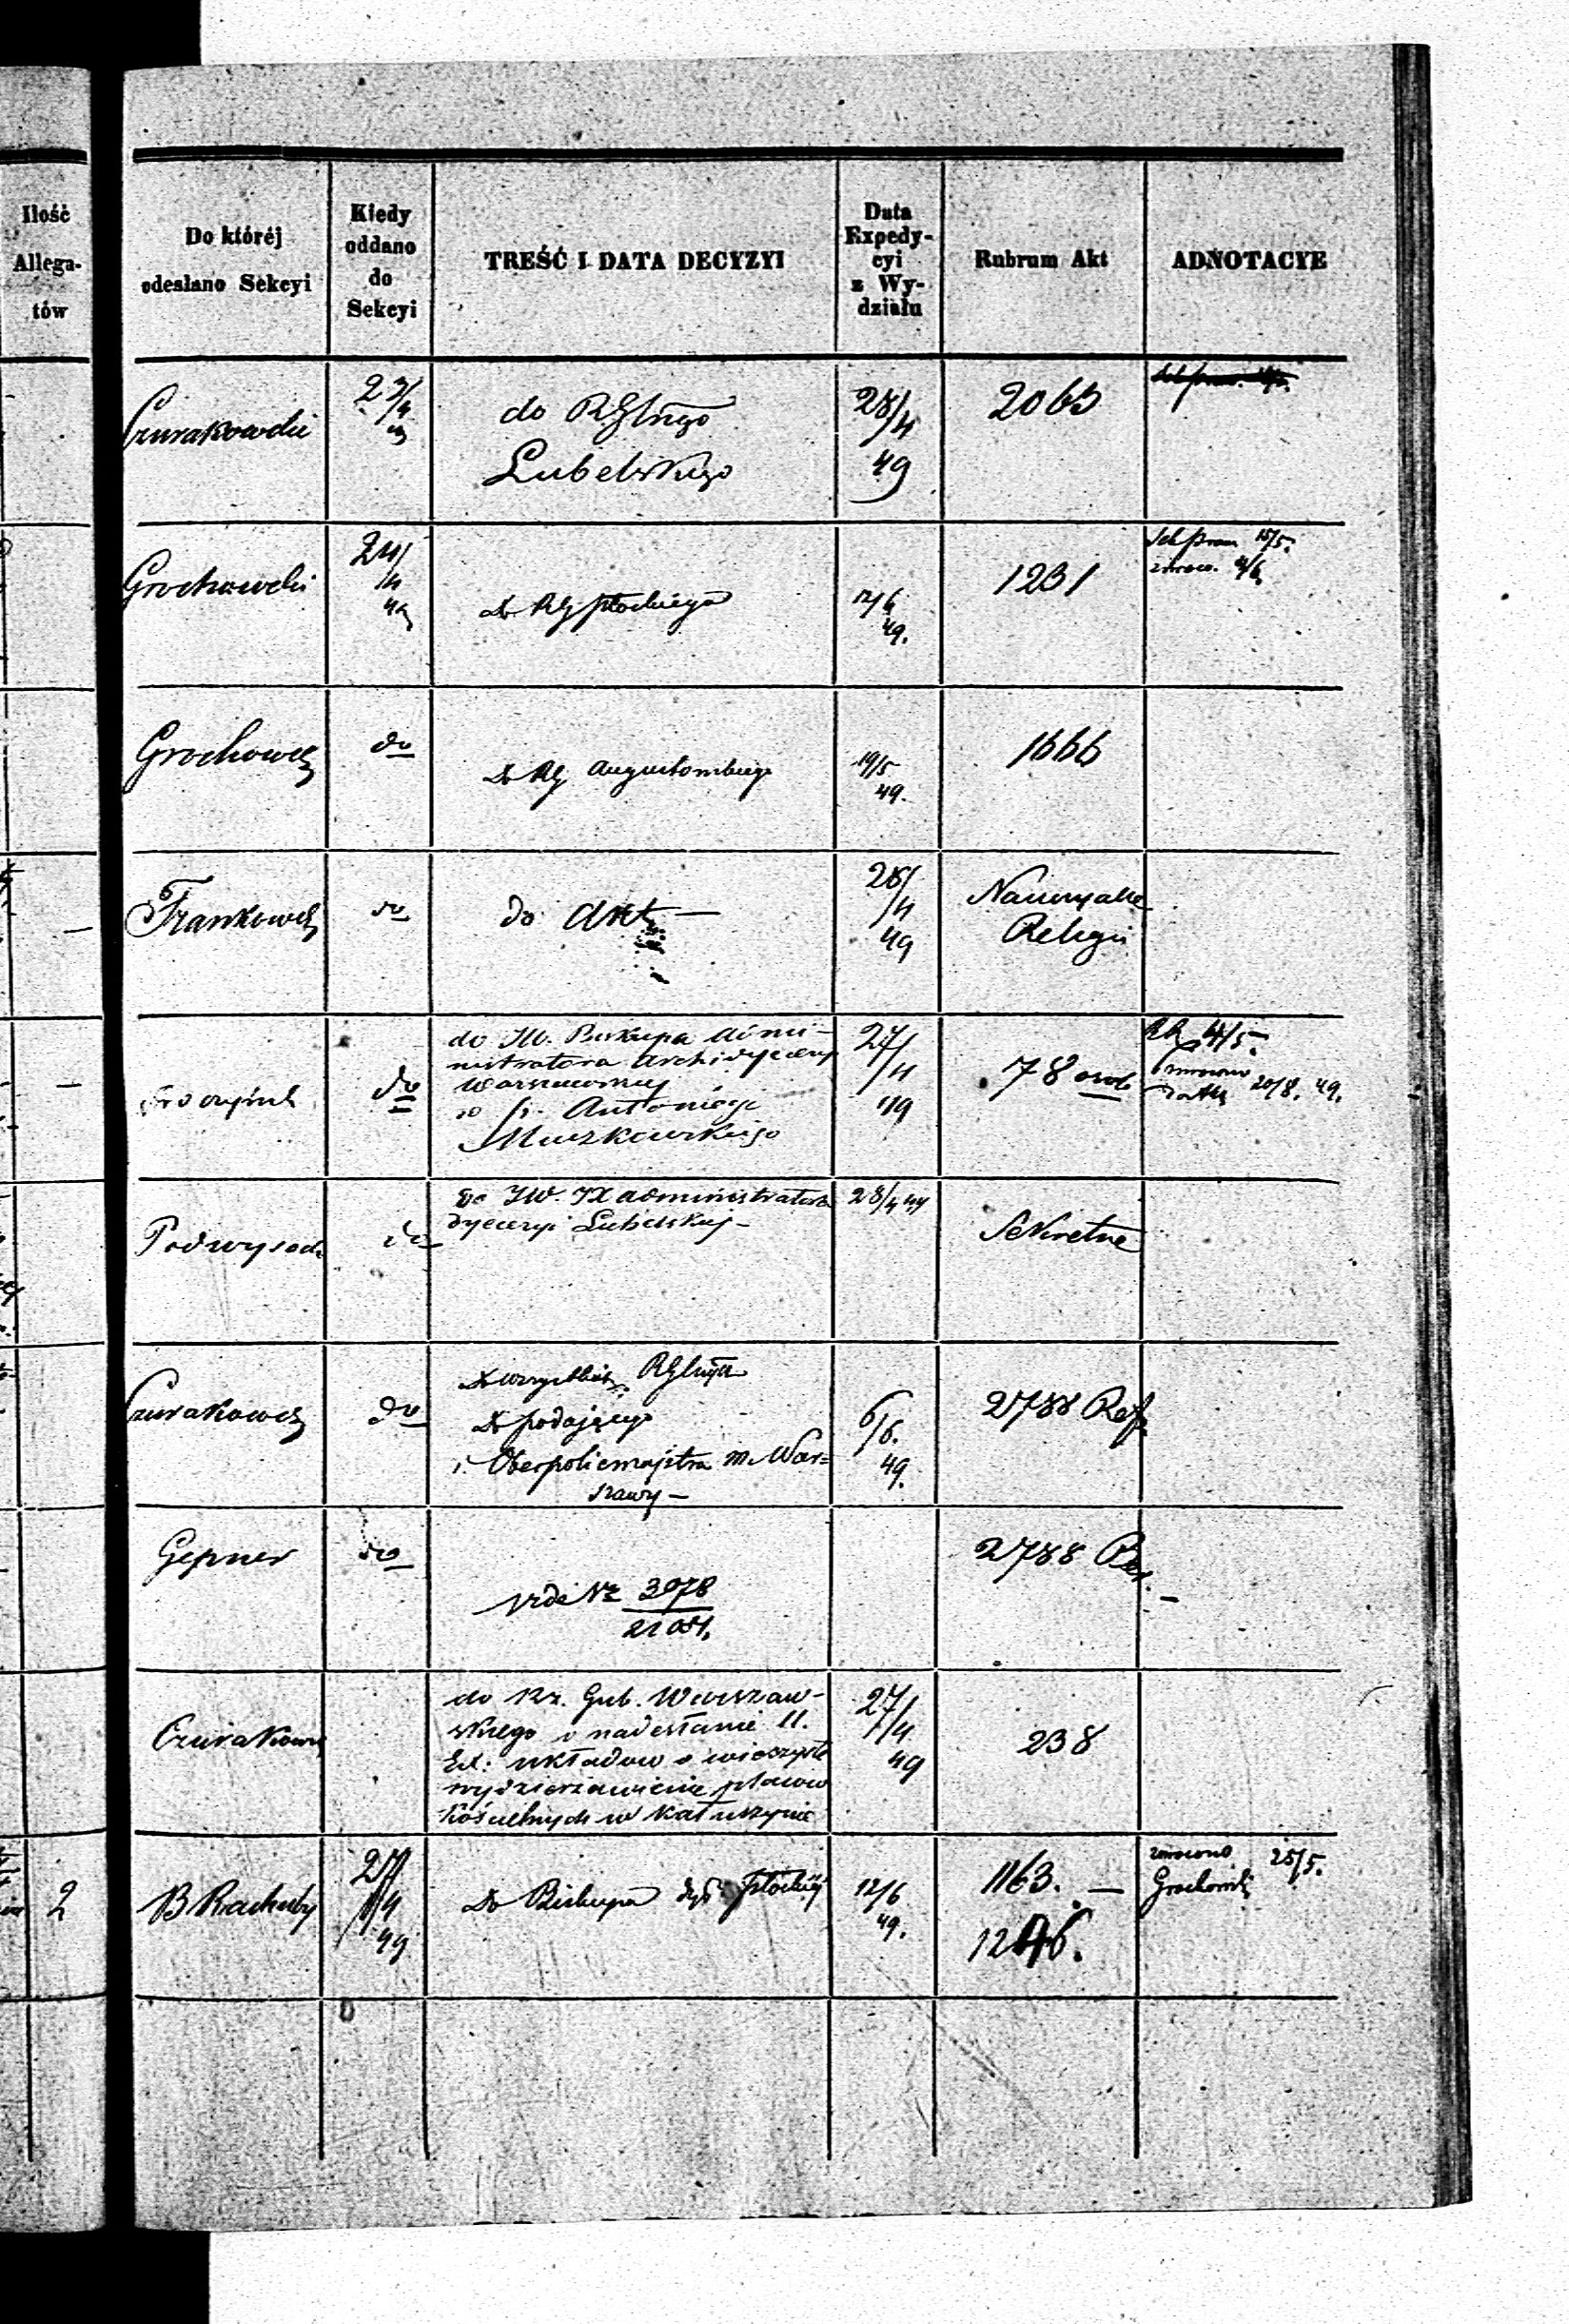 Ilość
Allega-
tów
Do któréj
odesłano Sekcyi
Kiedy
oddano
do
Sekcyi
TREŚĆ I DATA DECYZYI
Data
Expedy-
cyi
z Wy-
działu
Rubrum Akt
ADNOTACYE
Czurakowski
23/4
do RGlnego
Lubelskiego
28/4
49
2065
Grochowski
24/4
49
Do RG Płockiego
12/6
49.
1231
15/5.
zwroc. 4/6
Grochowski
do
Do RG Augustowskiego
19/5
49.
1666
Frankowski
do
do Akt —
28/4
49
Religii
do
do JW. Biskupa Admi-
nistratora Archidyecezyi
Warszawskiej
Antoniego
27/4
49
78 osob
4/5.
20/8. 49.
Podwysocki
do
Do JW. JX administratora
dyecezyi Lubelskiej —
28/4 49
Sekretne
Czurakowski
do
Do wszystkich RGlnych
Do podającego
i. Oberpolicmajstra m. War=
szawy —
6/6.
49.
2788 Ref.
Gepner
do
vide Nr 3078
21051.
2788
Czurakowski
do Rz. Gub. Warszaw-
skiego o nadesłanie 11.
Ex: układow o wieczyste
wydzierżawienie placow
Kościelnych w Kałuszynie
27/4
49
238
2
B Rachuby
27/4
49
Do Biskupa dye. Płockiej
12/6
49.
1163. —
1246.
zwrocono 25/5.
Grochowski